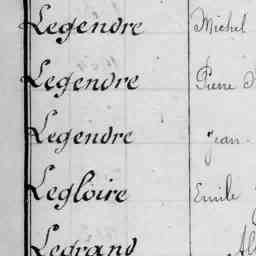 Legendre Michel
Legendre Pierre
Legendre Jean
Legloire Emile
Legrand